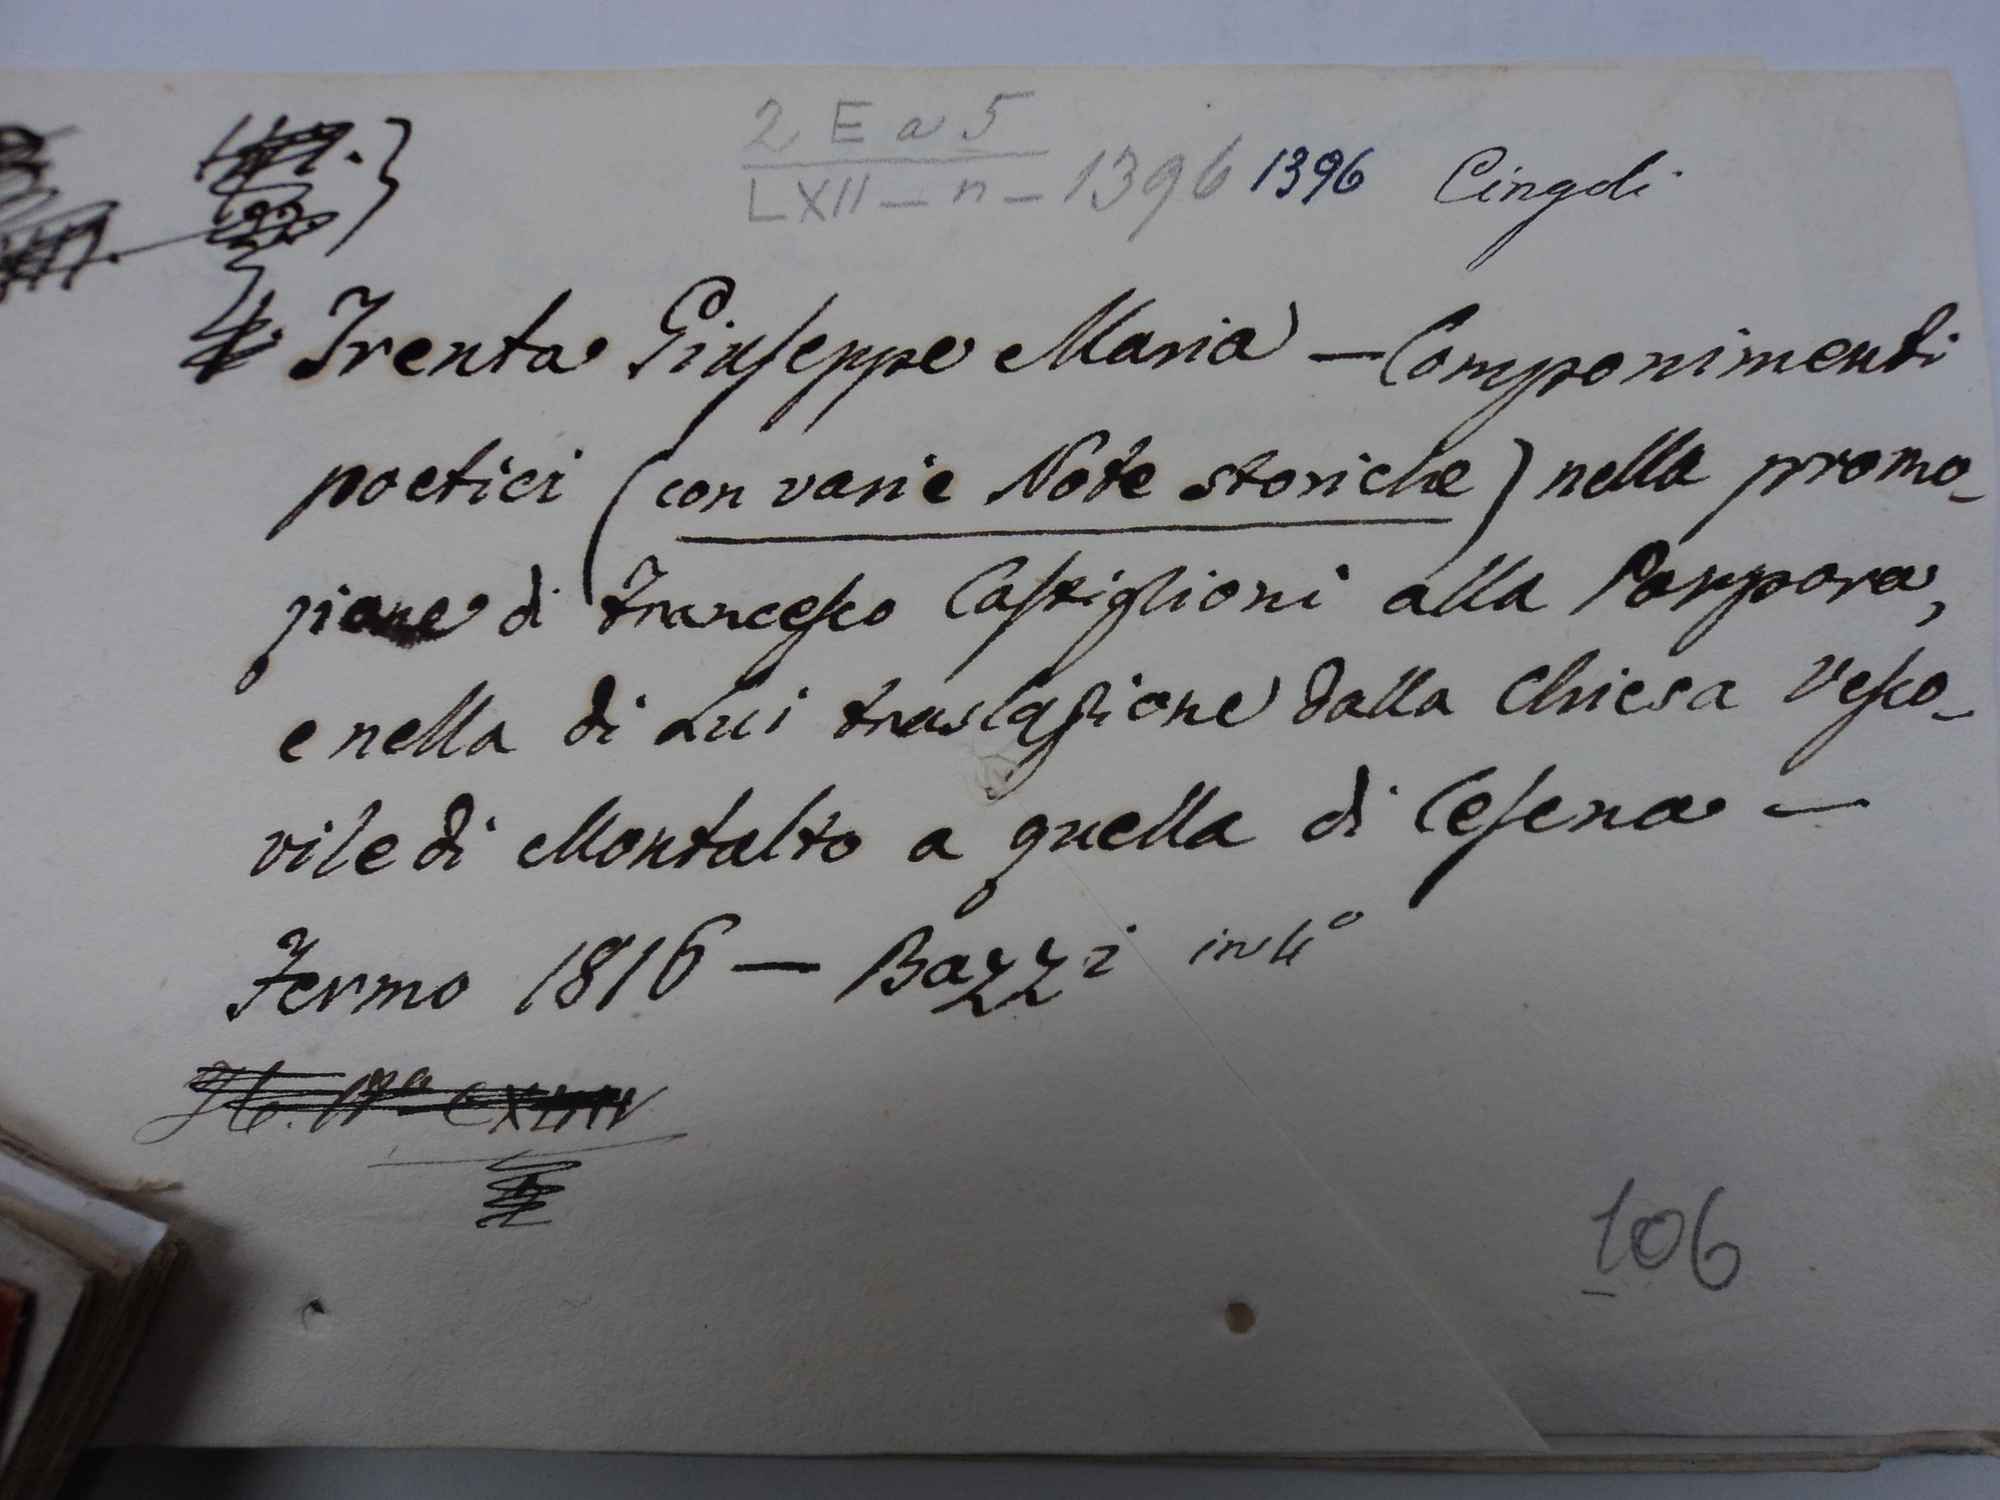 2 E a 5
LXII - n - 1396 1396 Cingoli
Trenta Giuseppe Maria — Componimenti
poetici (con varie Note storiche) nella promo-
zione di Francesco Castiglioni alla Porpora,
e nella di Lui traslazione dalla Chiesa Vesco-
vile di Montalto a quella di Cesena —
Fermo 1816 — Bazzi in 4°
106